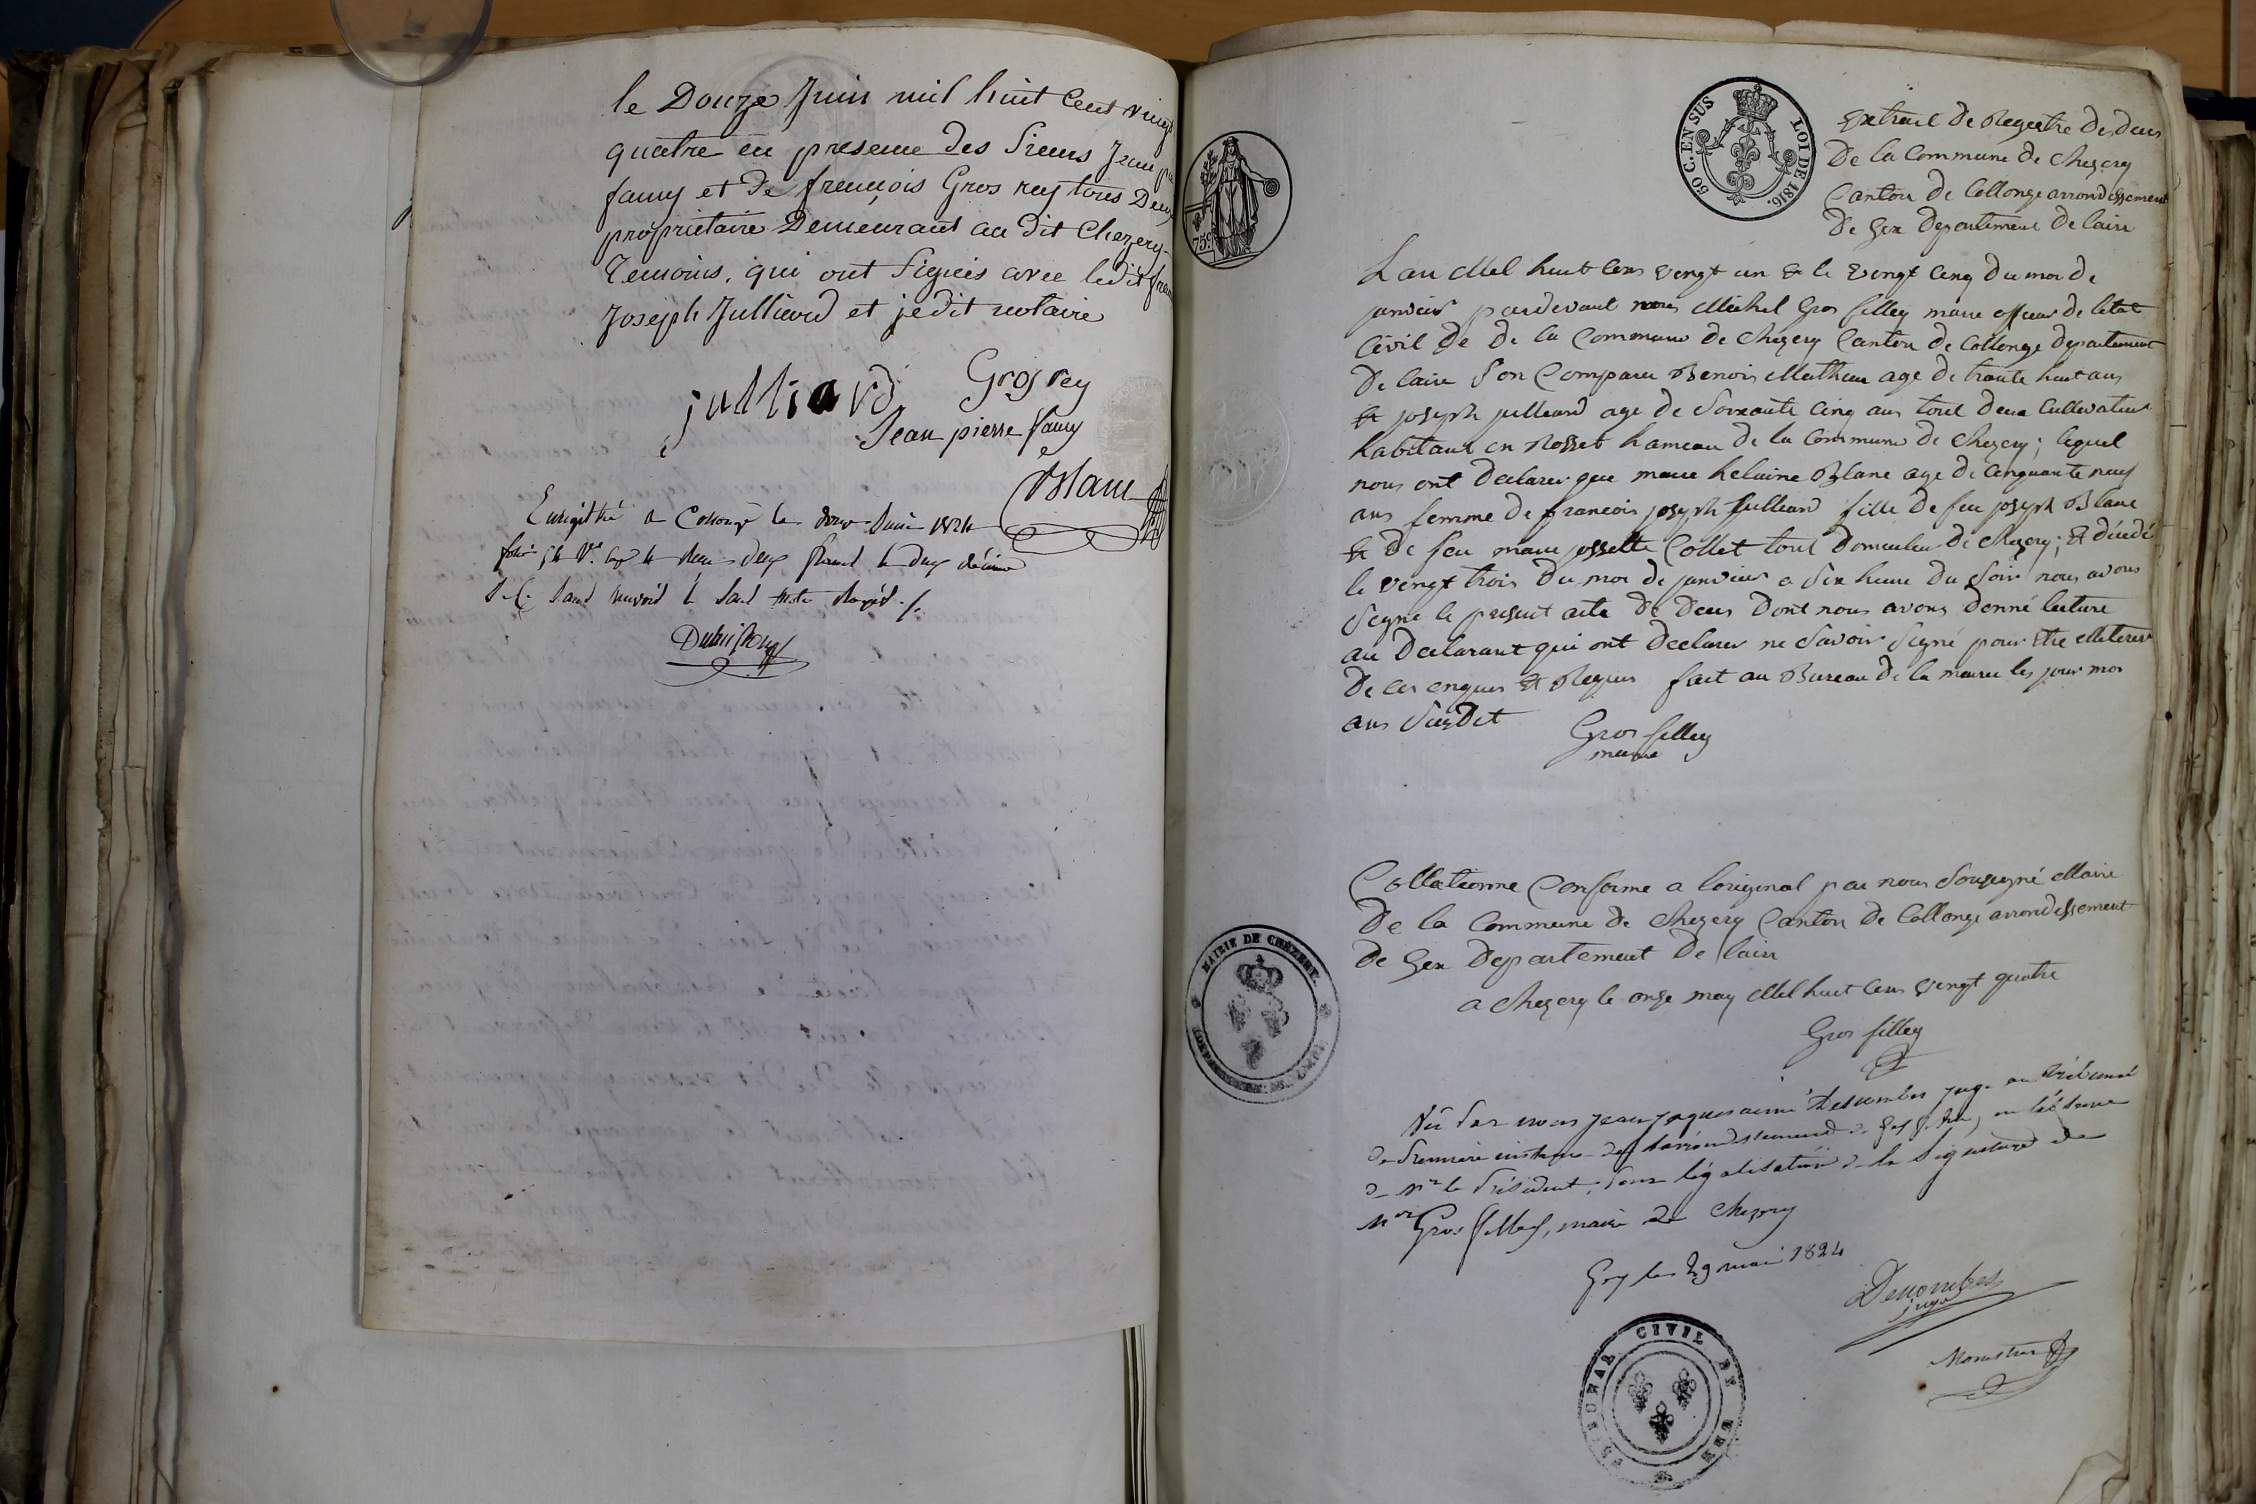 le Douze Juin mil huit Cent vingt
quatre en presence des Sieurs Jean
famy et de françois Gros rey tous Deux
proprietaire Demeurant au dit Chezery
Temoins, qui ont Signés avec ledit
Joseph Julliard et je dit notaire
julliard Gros rey
Jean pierre famy
Blanc
Enregistré a Collonge le douze Juin 1824
deux francs
30 C. EN SUS LOI DE 1816.
75c
Extrait de Regestre de deces
De la Commune de Chezery
Canton de Collonge arrondissement
De Gex Departement de lain
Lan Mel huit Cens vengt un & le vengt Cenq du moi de
janvier pardevant nous Michel Gros filley maire officier de letat
Civil De De la Commune de Chezery Canton de Collonge departement
De lain son Comparu Benoi Mathieu age de trante huit ans
& joseph julleard age de Soixante Cinq ans tout deux Cultivateur
habitant en Rosset hameau de la Commune de Chezery; lequel
nous ont declarer que marie helaine Blanc age de Cenquante neuf
ans femme de francois joseph julleard fille de feu joseph Blanc
& De feu marie josette Collet tout domicilier de Chezery; Et décédé
le vengt trois du moi de janvier a Six heure du Soir nous avons
Segne le present acte De Deces Dont nous avons donné lecture
au Declarant qui ont declarer ne Savoir Segné pour être elliterer
De ces enques & Reques fait au Bureau de la maires les jour moi
ans Susdit
Gros filley
maire
Collationne Conforme a loriginal par nous Sousegné Maire
De la Commune de Chezery Canton de Collonge arrondissement
De Gex Departement De lain
a Chezery le onze may Mel huit Cens vengt quatre
Gros filley
MAIRIE DE CHEZERY
Vu Par nous jean jaques aimé Desombes juge au Tribunal
de Premiere instance de larrondissement de Gex
de Mr le President, pour légalisation de la Signature de
Mr Gros filley, maire de Chezery
Gex le 29 mai 1824
Desombes
juge
TRIBUNAL CIVIL DE GEX